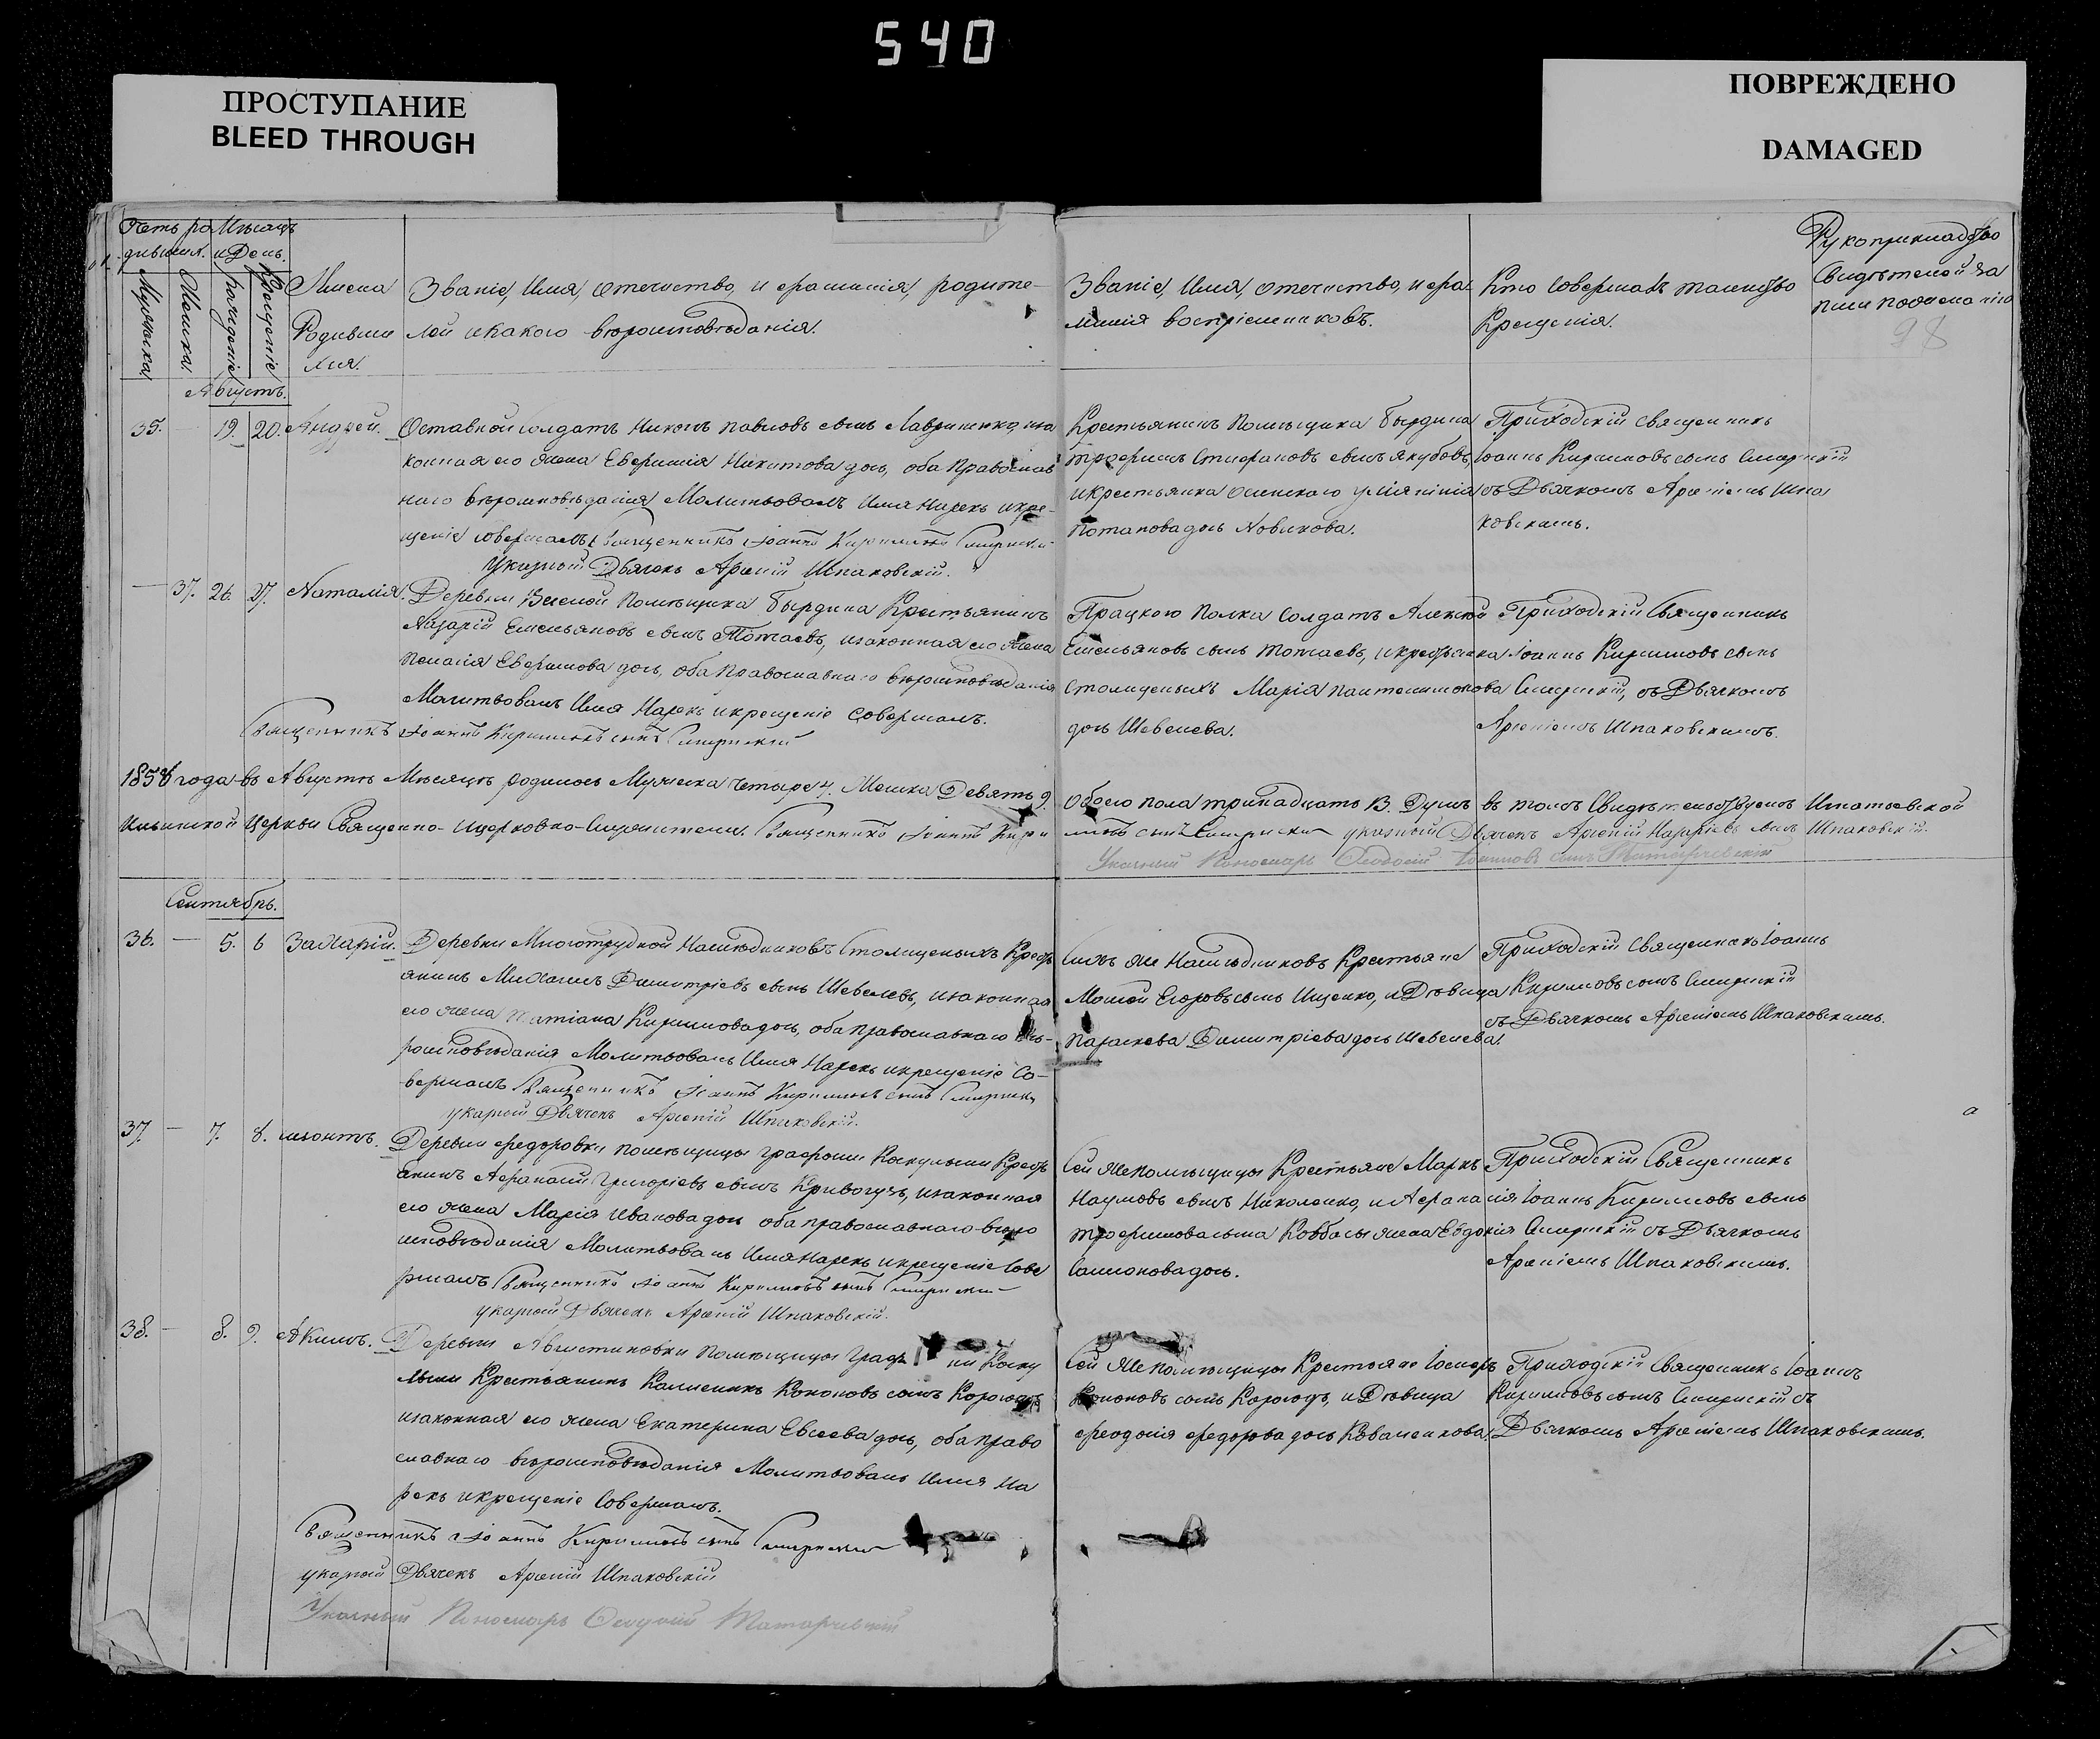 540
ПРОСТУПАНИЕ
BLEED THROUGH
ПОВРЕЖДЕНО
DAMAGED
Счетъ ро
дившихся.
Мѣсяцъ
и День.
Мужеска
Женска
рожденіе
Крещеніе
Имена
Родивши
хся.
Званіе, Имя, отечество, и фамилія, родите-
лей и какого вѣроисповѣданія.
Званіе, Имя, отечество, и фа
милія воспріемниковъ.
Кто совершалъ таинство
Крещенія.
Рукоприкладство
Свидѣтелей за
писи по желанію
98
Августъ.
35. — 19. 20. Андрей.
Отставной солдатъ Никонъ Павловъ сынъ Лавриненко, иза
конная его жена Евфимія Никитова дочь, оба Православ
наго вѣроисповѣданія Молитвовалъ Имя Нарекъ и кре-
щеніе совершалъ Священникъ Іоаннъ Кириловъ Смирнскій
Указной Дьячекъ Арсеній Шпаковскій.
Крестьянинъ Помѣщика Бырдина
Трофимъ Стефановъ сынъ Якубовъ,
и крестьянка
Потапова дочь Новикова.
Приходскій Священникъ
Іоаннъ Кириловъ сынъ Смирнскій
съ Дьячкомъ Арсеніемъ Шпа
ковскимъ.
— 37. 26. 27. Наталія.
Деревни Помѣщика Бырдина Крестьянинъ
Назарій Емельяновъ сынъ Топчаевъ, и законная его жена
Пелагія Евфимова дочь, оба Православнаго вѣроисповѣданія
Молитвовалъ Имя Нарекъ и крещеніе совершалъ.
Священникъ Іоаннъ Кириловъ сынъ Смирнскій
Полка Солдатъ Алексѣй
Емельяновъ сынъ Топчаевъ, и крестьянка
Столицыныхъ Марія Пантелимонова
дочь Шевелева.
Приходскій Священникъ
Іоаннъ Кириловъ сынъ
Смирнскій, съ Дьячкомъ
Арсеніемъ Шпаковскимъ.
1858 года въ Августѣ Мѣсяцѣ родилось Мужеска Четыре 4. Женска Девять 9.
Обоего пола тринадцать 13. Душъ въ томъ Свидѣтельствуемъ Игнатьевской
Ильинской Церкви Священно-Церковно-Служители. Священникъ Іоаннъ Кири
ловъ сынъ Смирнскій указной Дьячекъ Арсеній Назаріевъ сынъ Шпаковскій.
Указный Пономарь Ѳеодосій Іоанновъ сынъ
Сентябрь.
36. — 5. 6 Захарій.
Деревни Многотрудной Наслѣдниковъ Столицыныхъ Кресть
янинъ Михаилъ Димитріевъ сынъ Шевелевъ, и законная
его жена Татіана Кирилова дочь, оба православнаго вѣ-
роисповѣданія Молитвовалъ Имя Нарекъ и крещеніе Со-
вершалъ Священникъ Іоаннъ Кириловъ сынъ Смирнскій
указной Дьячекъ Арсеній Шпаковскій.
Сихъ же Наслѣдниковъ Крестьяне
Моисей Егоровъ сынъ Ищенко, и Дѣвица
Параскева Димитріева дочь Шевелева.
Приходскій Священникъ Іоаннъ
Кириловъ сынъ Смирнскій
съ Дьячкомъ Арсеніемъ Шпаковскимъ.
37. — 7. 8.
Деревни Федоровки помѣщицы Графини Крест
янинъ Афанасій Григоріевъ сынъ Кривогузъ, и законная
его жена Марія Иванова дочь оба православнаго вѣро
исповѣданія Молитвовалъ Имя Нарекъ и крещеніе Сове
ршалъ Священникъ Іоаннъ Кириловъ сынъ Смирнскій
указной Дьячекъ Арсеній Шпаковскій.
Сей же помѣщицы Крестьяне Маркъ
Наумовъ сынъ Николенко, и Афанасія
Трофимова сына Ковбасы жена Евдокія
Самсонова дочь.
Приходскій Священникъ
Іоаннъ Кириловъ сынъ
Смирнскій съ Дьячкомъ
Арсеніемъ Шпаковскимъ.
38. — 8. 9. Акимъ.
Деревни Августиновки помѣщицы Граф ни
Крестьянинъ Калиникъ Кононовъ сынъ Корогодъ
и законная его жена Екатерина Евсеева дочь, оба право
славнаго вѣроисповѣданія Молитвовалъ Имя На
рекъ и крещеніе Совершалъ.
Священникъ Іоаннъ Кириловъ сынъ Смирнскій
указной Дьячекъ Арсеній Шпаковскій
Указный Пономарь Ѳеодосій
Сей же помѣщицы Крестьяне Іосифъ
Кононовъ сынъ Корогодъ, и Дѣвица
Феодосія Федорова дочь Коваленкова.
Приходскій Священникъ Іоаннъ
Кириловъ сынъ Смирнскій съ
Дьячкомъ Арсеніемъ Шпаковскимъ.